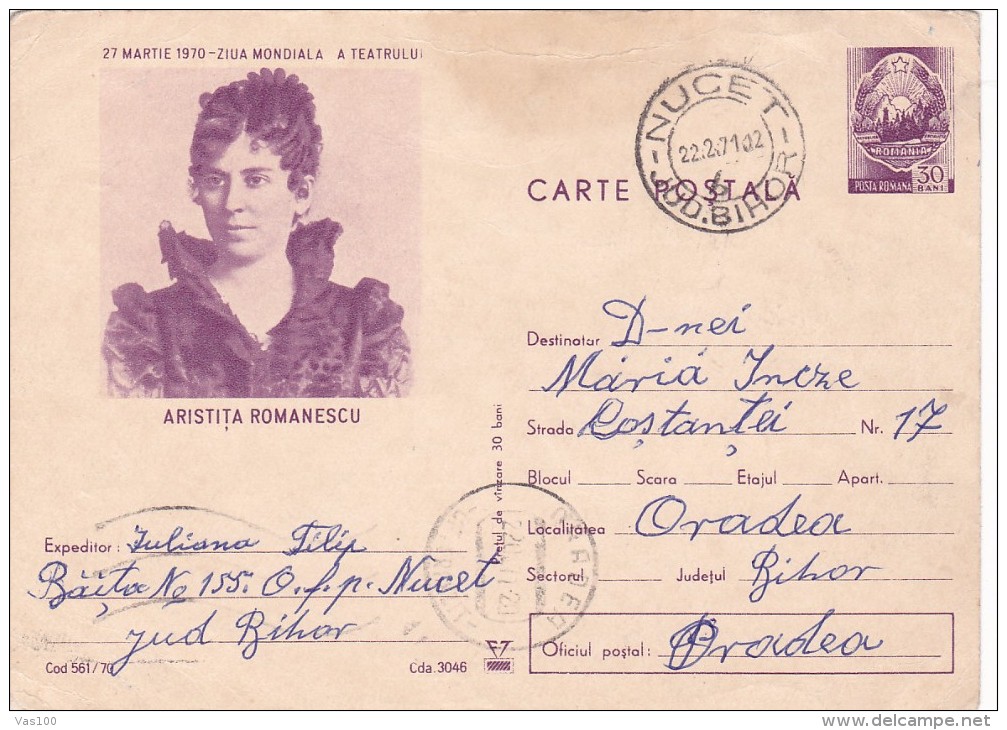 27 MARTIE 1970-ZIUA MONDIALA A TEATRULUI
ARISTIȚA ROMANESCU
NUCET
22.2.71.12
6
JUD. BIHOR
ROMANIA
POSTA ROMANA 30 BANI
CARTE POŞTALĂ
Destinatar D-nei
Mária Incze
Strada Coștanței Nr. 17
Blocul Scara Etajul Apart.
Localitatea Oradea
Sectorul Județul Bihor
Oficiul poştal: Oradea
Prețul de vînzare 30 bani
ORADEA
Expeditor: Iuliana Filip
Băița No 155. O.f.p. Nucet
jud Bihor
Cod 561/70
Cda. 3046
Vas100
www.delcampe.net